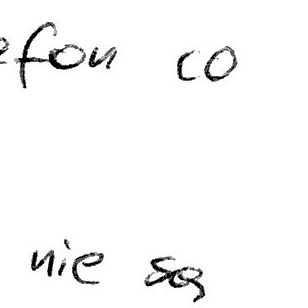 efon co
nie są